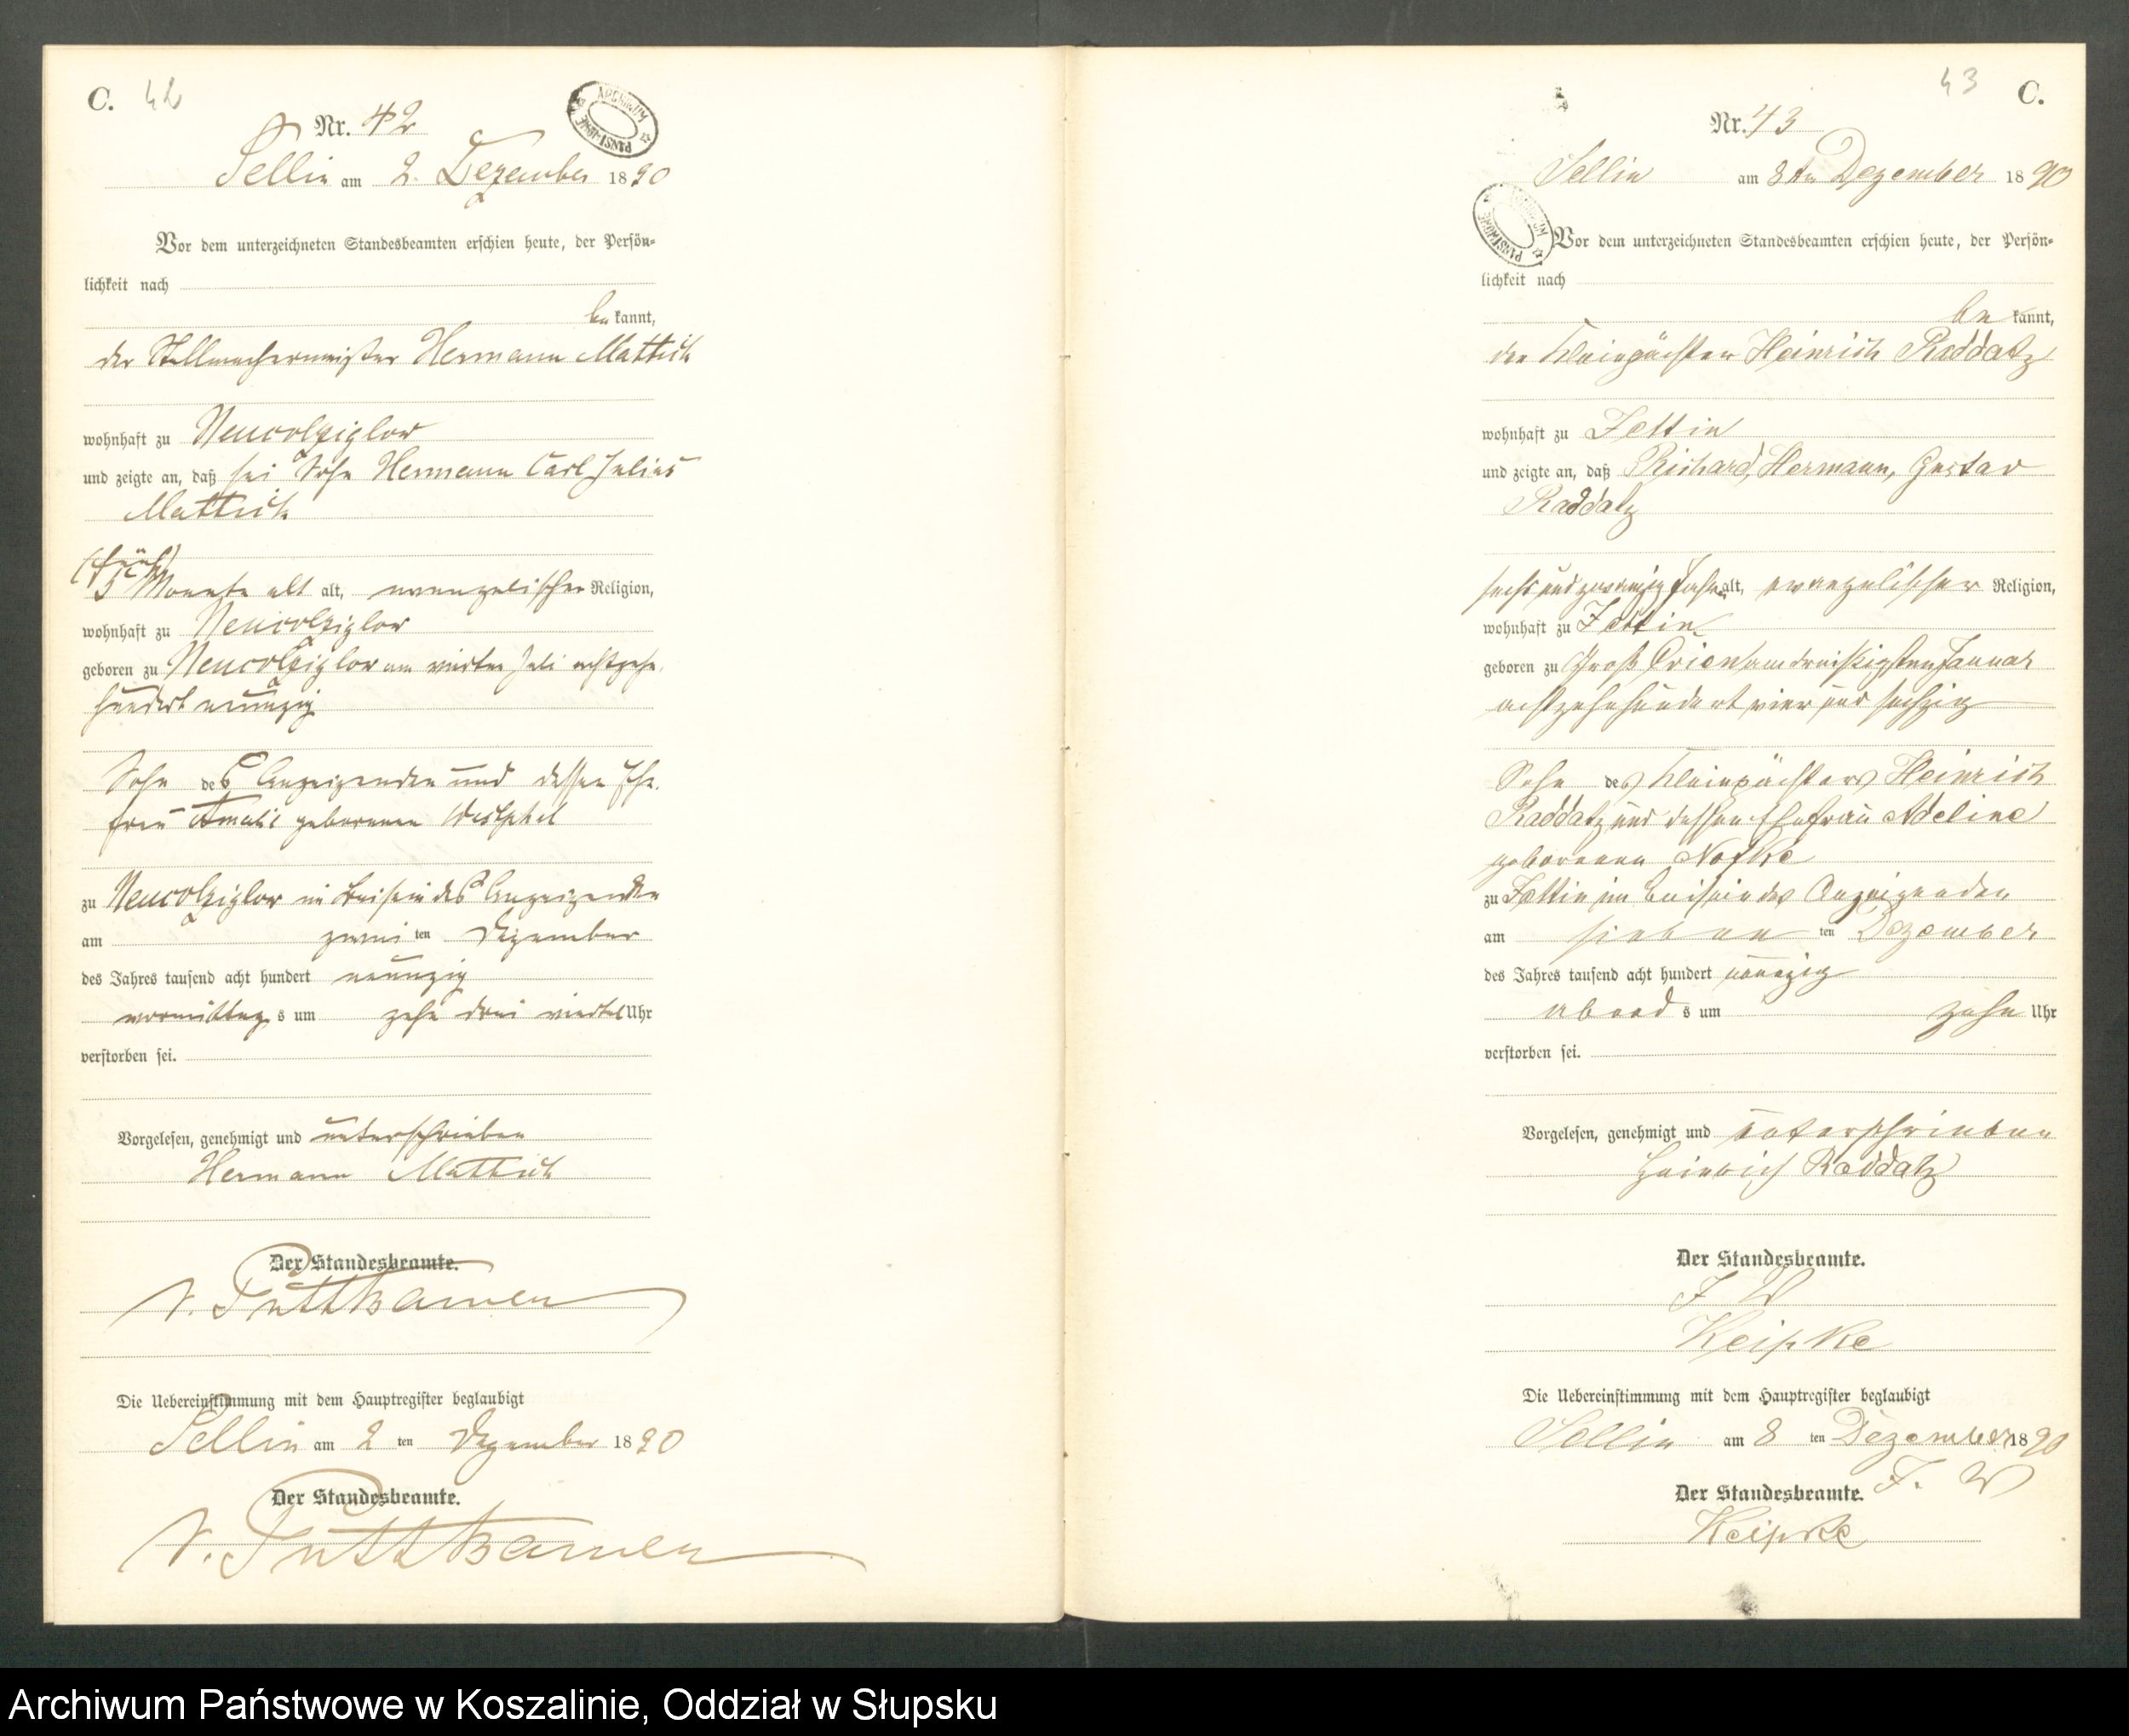 C. 42
Nr. 42
ARCHIWUM PAŃSTWOWE
Sellin am 2. Dezember 1890
Vor dem unterzeichneten Standesbeamten erschien heute, der Persön=
lichkeit nach
be kannt,
der Stellmachermeister Hermann Mattick
wohnhaft zu Neucolziglow
und zeigte an, daß sei Sohn Hermann Carl Julius
Mattick
(fünf)
5 Monate alt alt, evangelischer Religion,
wohnhaft zu Neucolziglow
geboren zu Neucolziglow am vierten Juli achtzehn
hundert neunzig
Sohn des Anzeigenden und dessen Ehe
frau Amalie geborenen Westphal
zu Neucolziglow im Beisein des Anzeigenden
am zwei ten Dezember
des Jahres tausend acht hundert neunzig
vormittag s um zehn drei viertel Uhr
verstorben sei.
Vorgelesen, genehmigt und unterschrieben
Hermann Mattick
Der Standesbeamte.
v. Puttkamer
Die Uebereinstimmung mit dem Hauptregister beglaubigt
Sellin am 2 ten Dezember 1890
Der Standesbeamte.
v. Puttkamer
43 C.
Nr. 43
Sellin am 8ten Dezember 1890
Vor dem unterzeichneten Standesbeamten erschien heute, der Persön=
lichkeit nach
be kannt,
der Kleinpächter Heinrich Raddatz
wohnhaft zu Jettin
und zeigte an, daß Richard, Hermann, Gustav
Raddatz
sechs und zwanzig Jahre alt, evangelischer Religion,
wohnhaft zu Jettin
geboren zu Groß am dreißigsten Januar
achtzehnhundert vier und sechzig
Sohn des Kleinpächters Heinrich
Raddatz und dessen Ehefrau Adeline
geborenen Nofke
zu Jettin im Beisein des Anzeigenden
am sieben ten Dezember
des Jahres tausend acht hundert neunzig
abend s um zehn Uhr
verstorben sei.
Vorgelesen, genehmigt und unterschrieben
Heinrich Raddatz
Der Standesbeamte.
J W
Keipke
Die Uebereinstimmung mit dem Hauptregister beglaubigt
Sellin am 8 ten Dezember 1890
Der Standesbeamte. J. W
Keipke
Archiwum Państwowe w Koszalinie, Oddział w Słupsku